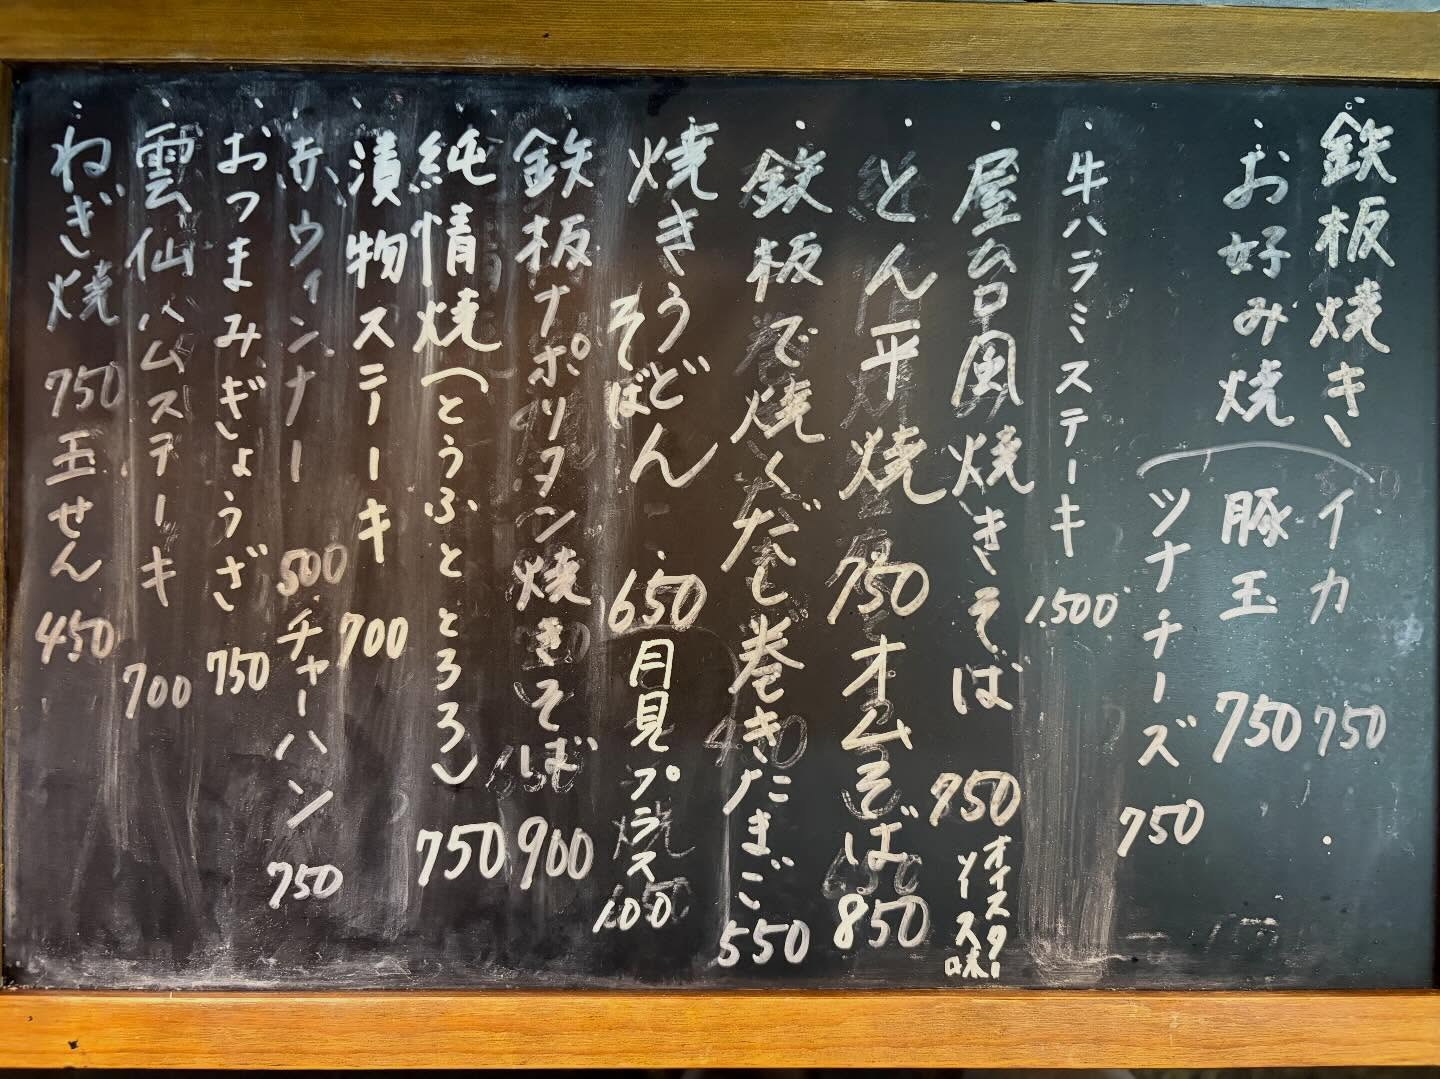 ・鉄板焼き イカ 750
・お好み焼 豚玉 750
ツナチーズ 750
・牛ハラミステーキ 1,500
・屋台風焼きそば 750 オイスターソース味
・とん平焼 750 オムそば 850
・鉄板で焼くだし巻きたまご 550
・焼きうどん そば 650 月見プラス100
・鉄板ナポリタン焼きそば 900
・純情焼(とうふととろろ) 750
・漬物ステーキ 700
・赤ウィンナー 500 チャーハン 750
・おつまみぎょうざ 750
・雲仙ハムステーキ 700
・ねぎ焼 750 玉せん 450